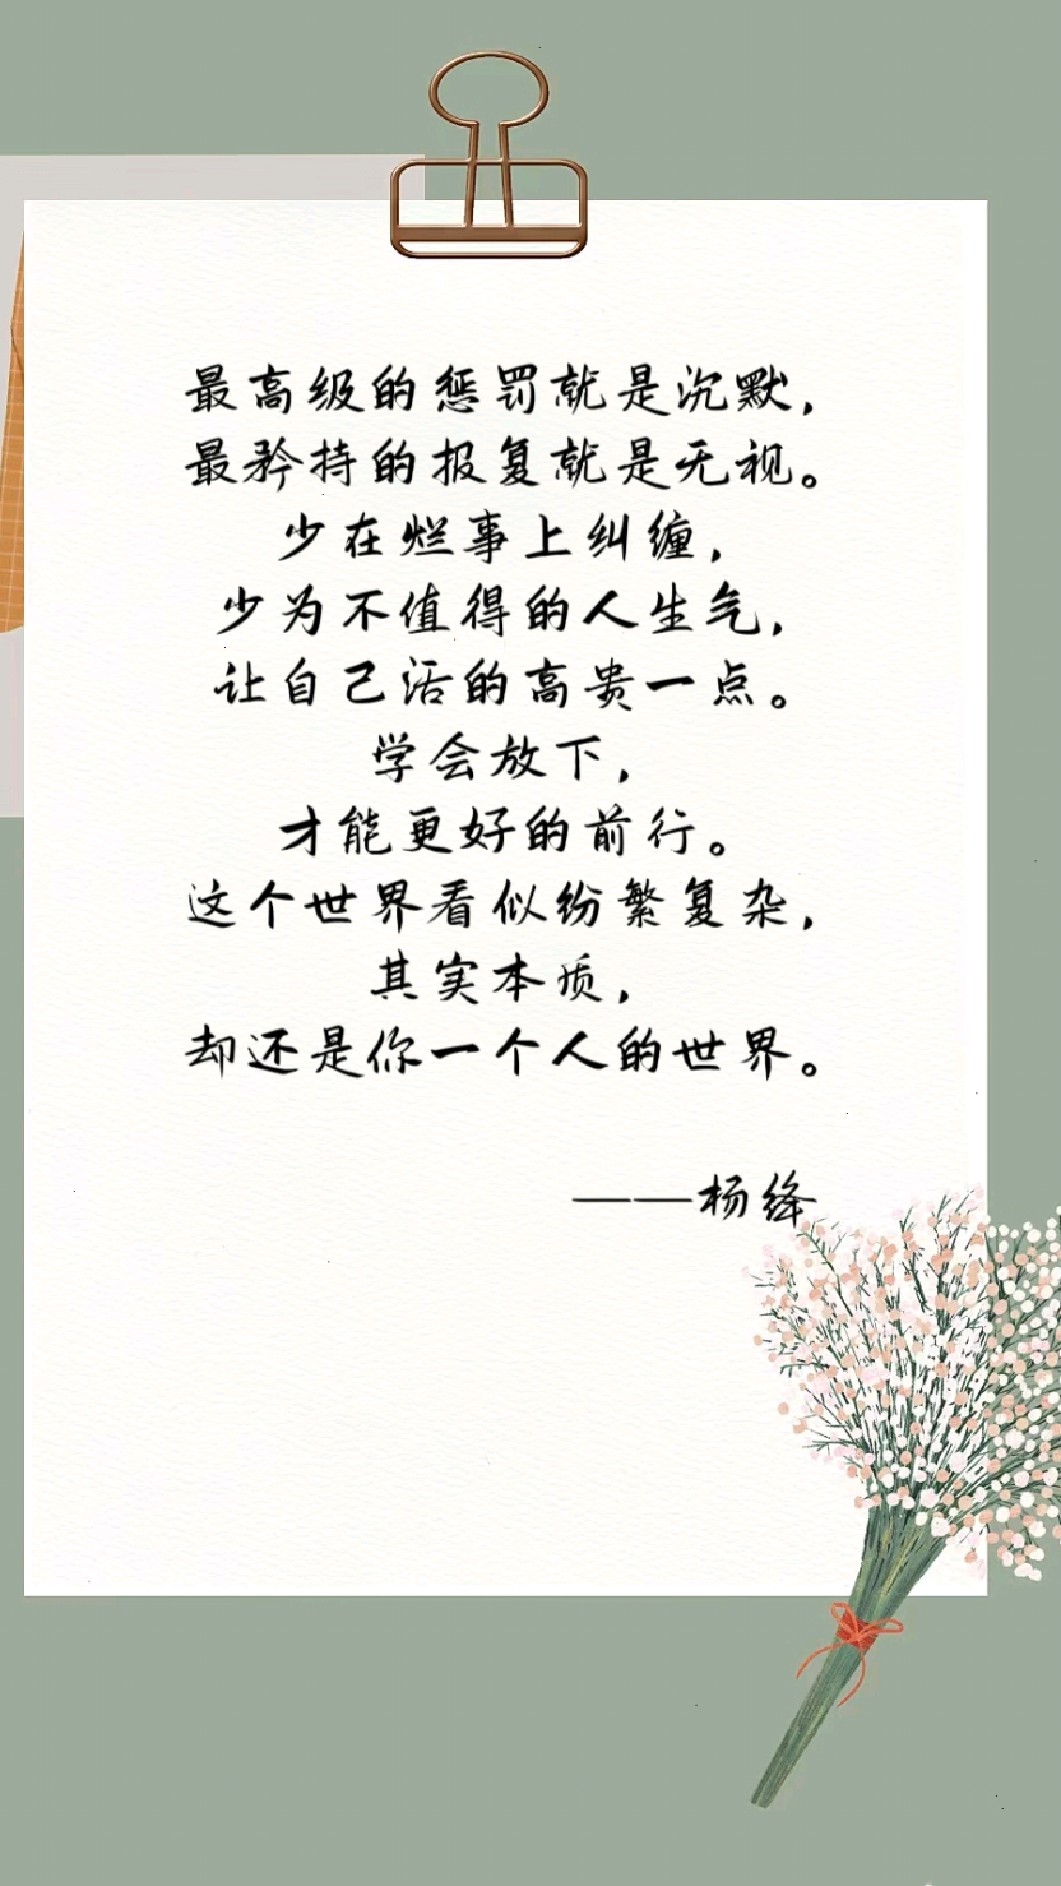 最高级的惩罚就是沉默，
最矜持的报复就是无视。
少在烂事上纠缠，
少为不值得的人生气，
让自己活的高贵一点。
学会放下，
才能更好的前行。
这个世界看似纷繁复杂，
其实本质，
却还是你一个人的世界。
——杨绛